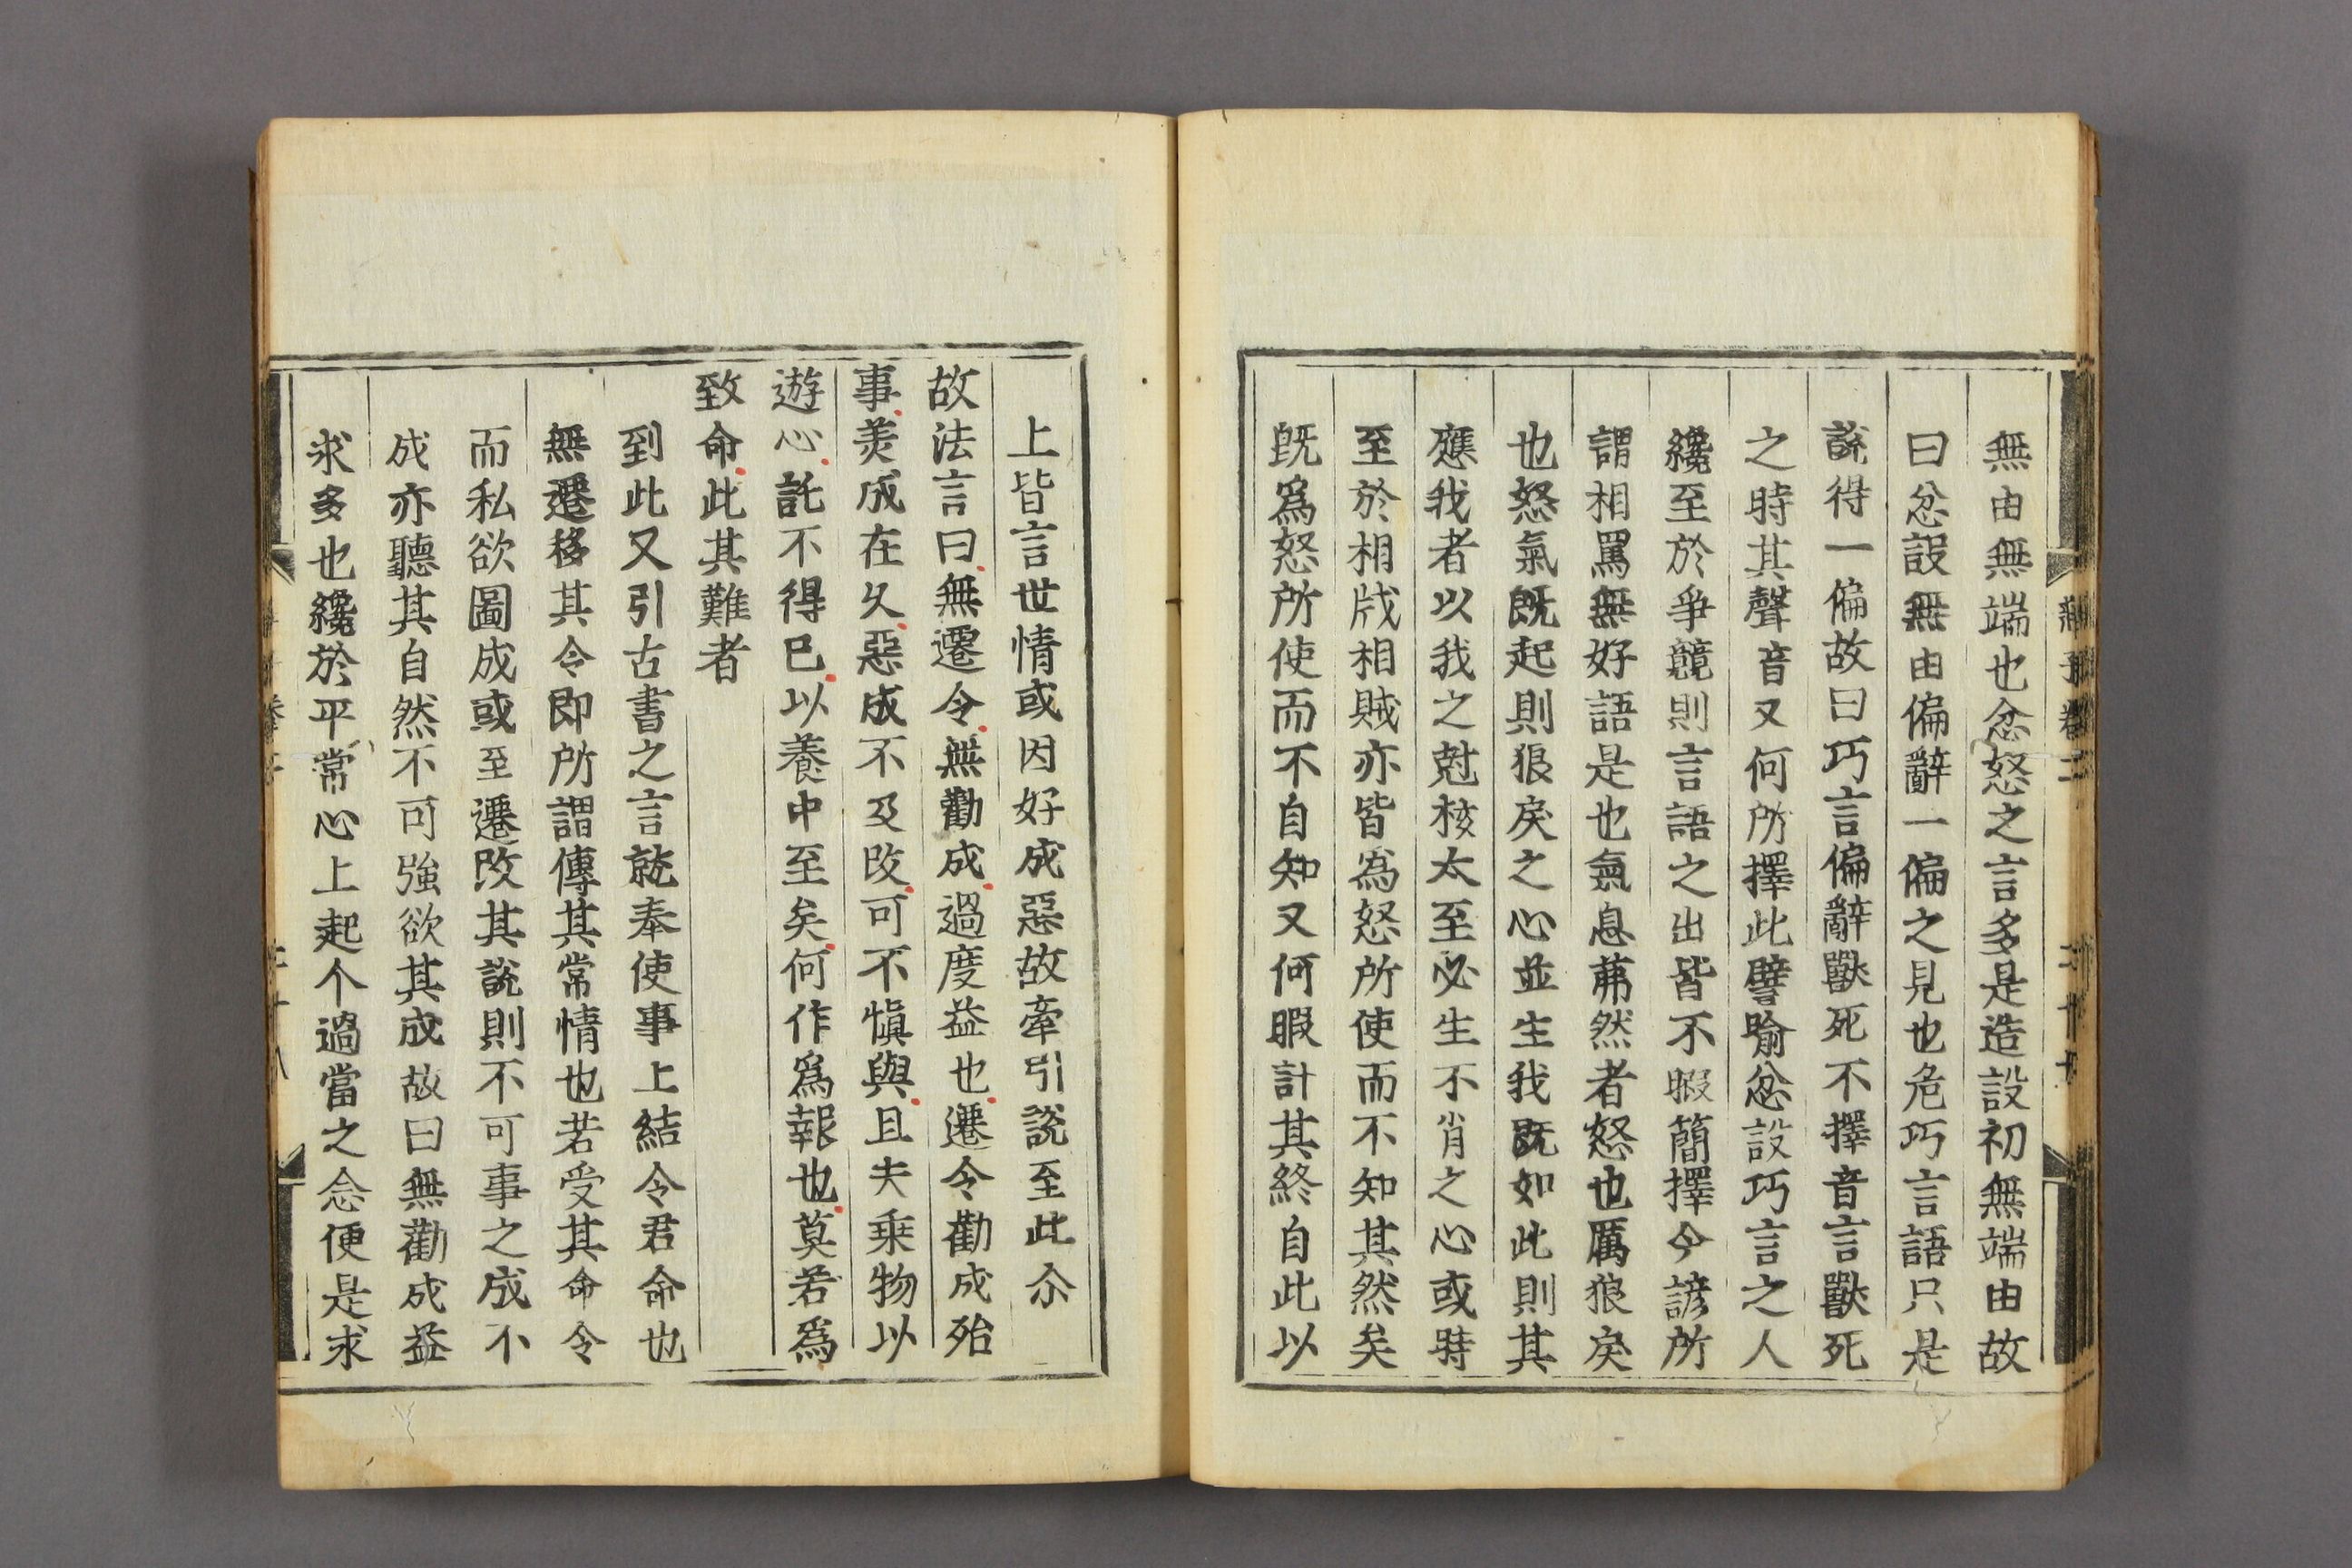 無由無端也忿怒之言多是造設初無端由故
曰忿設無由偏辭一偏之見也危巧言語只是
說得一偏故曰巧言偏辭獸死不擇音言獸死
之時其聲音又何所擇此譬喻忿設巧言之人
纔至於爭競則言語之出皆不暇簡擇今諺所
謂相罵無好語是也氣息茀然者怒也厲狼戾
也怒氣旣起則狼戾之心並生我旣如此則其
應我者以我之尅核太至必生不肖之心或時
至於相戕相賊亦皆為怒所使而不知其然矣
旣爲怒所使而不自知又何暇計其終自此以
上皆言世情或因好成惡故牽引說至此尒
故法言曰無遷令無勸成過度益也遷令勸成殆
事羙成在久惡成不及改可不慎與且夫乗物以
遊心託不得已以養中至矣何作爲報也莫若爲
致命此其難者
到此又引古書之言就奉使事上結令君命也
無遷移其令即所謂傳其常情也若受其命令
而私欲圖成或至遷改其說則不可事之成不
成亦聽其自然不可強欲其成故曰無勸成益
求多也纔於平常心上起个過當之念便是求